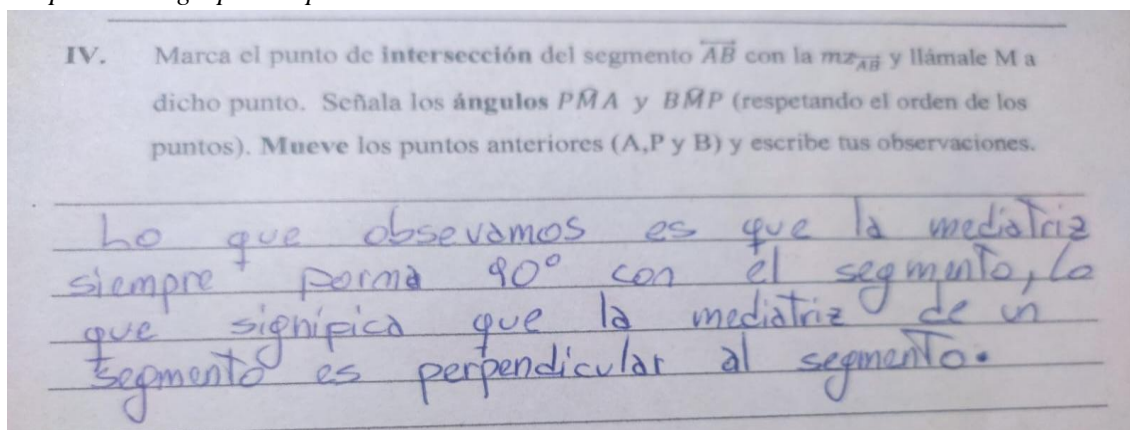 IV. Marca el punto de intersección del segmento \overleftrightarrow{AB} con la mz_{\overleftrightarrow{AB}} y llámale M a
dicho punto. Señala los ángulos PM̂A y BM̂P (respetando el orden de los
puntos). Mueve los puntos anteriores (A,P y B) y escribe tus observaciones.
Lo que obsevamos es que la mediatriz
siempre porma 90° con el segmento, lo
que signipica que la mediatriz de un
segmento es perpendicular al segmento.